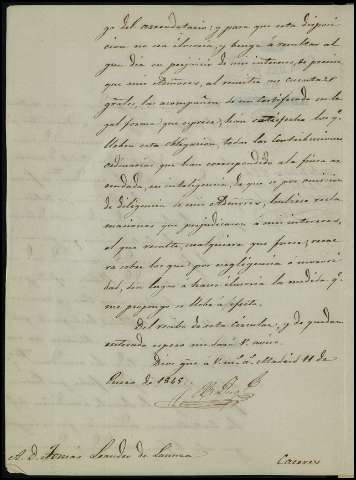 go del arrendatario; y para que esta disposi-
cion no sea ilusoria, y venga á resultas al
gun dia en perjuicio de mis intereses, se previene
que mis Admores, al remitir sus cuentas
grales, las acompañen de un certificado en le
gal forma que esprese, han satisfecho los qe
lleben esta obligacion, todas las contribuciones
ordinarias que han correspondido á la finca ar
rendada, en inteligencia, de que si por omision
de diligencia de mis Admores, hubiese recla
maciones que perjudicaran á mis intereses,
el que resulte, cualquiera que fuese, recae
rá sobre los que por negligencia o
dad, den lugar a hacer ilusoria la medida qe
me propongo se lleve á efecto.
Del recibo de esta circular, y de quedar
enterado espero me dará V. aviso.
Dios gue á V. ms. as. Madrid 11 de
Enero de 1845.
A. D. Tomás Leandro de
Caceres